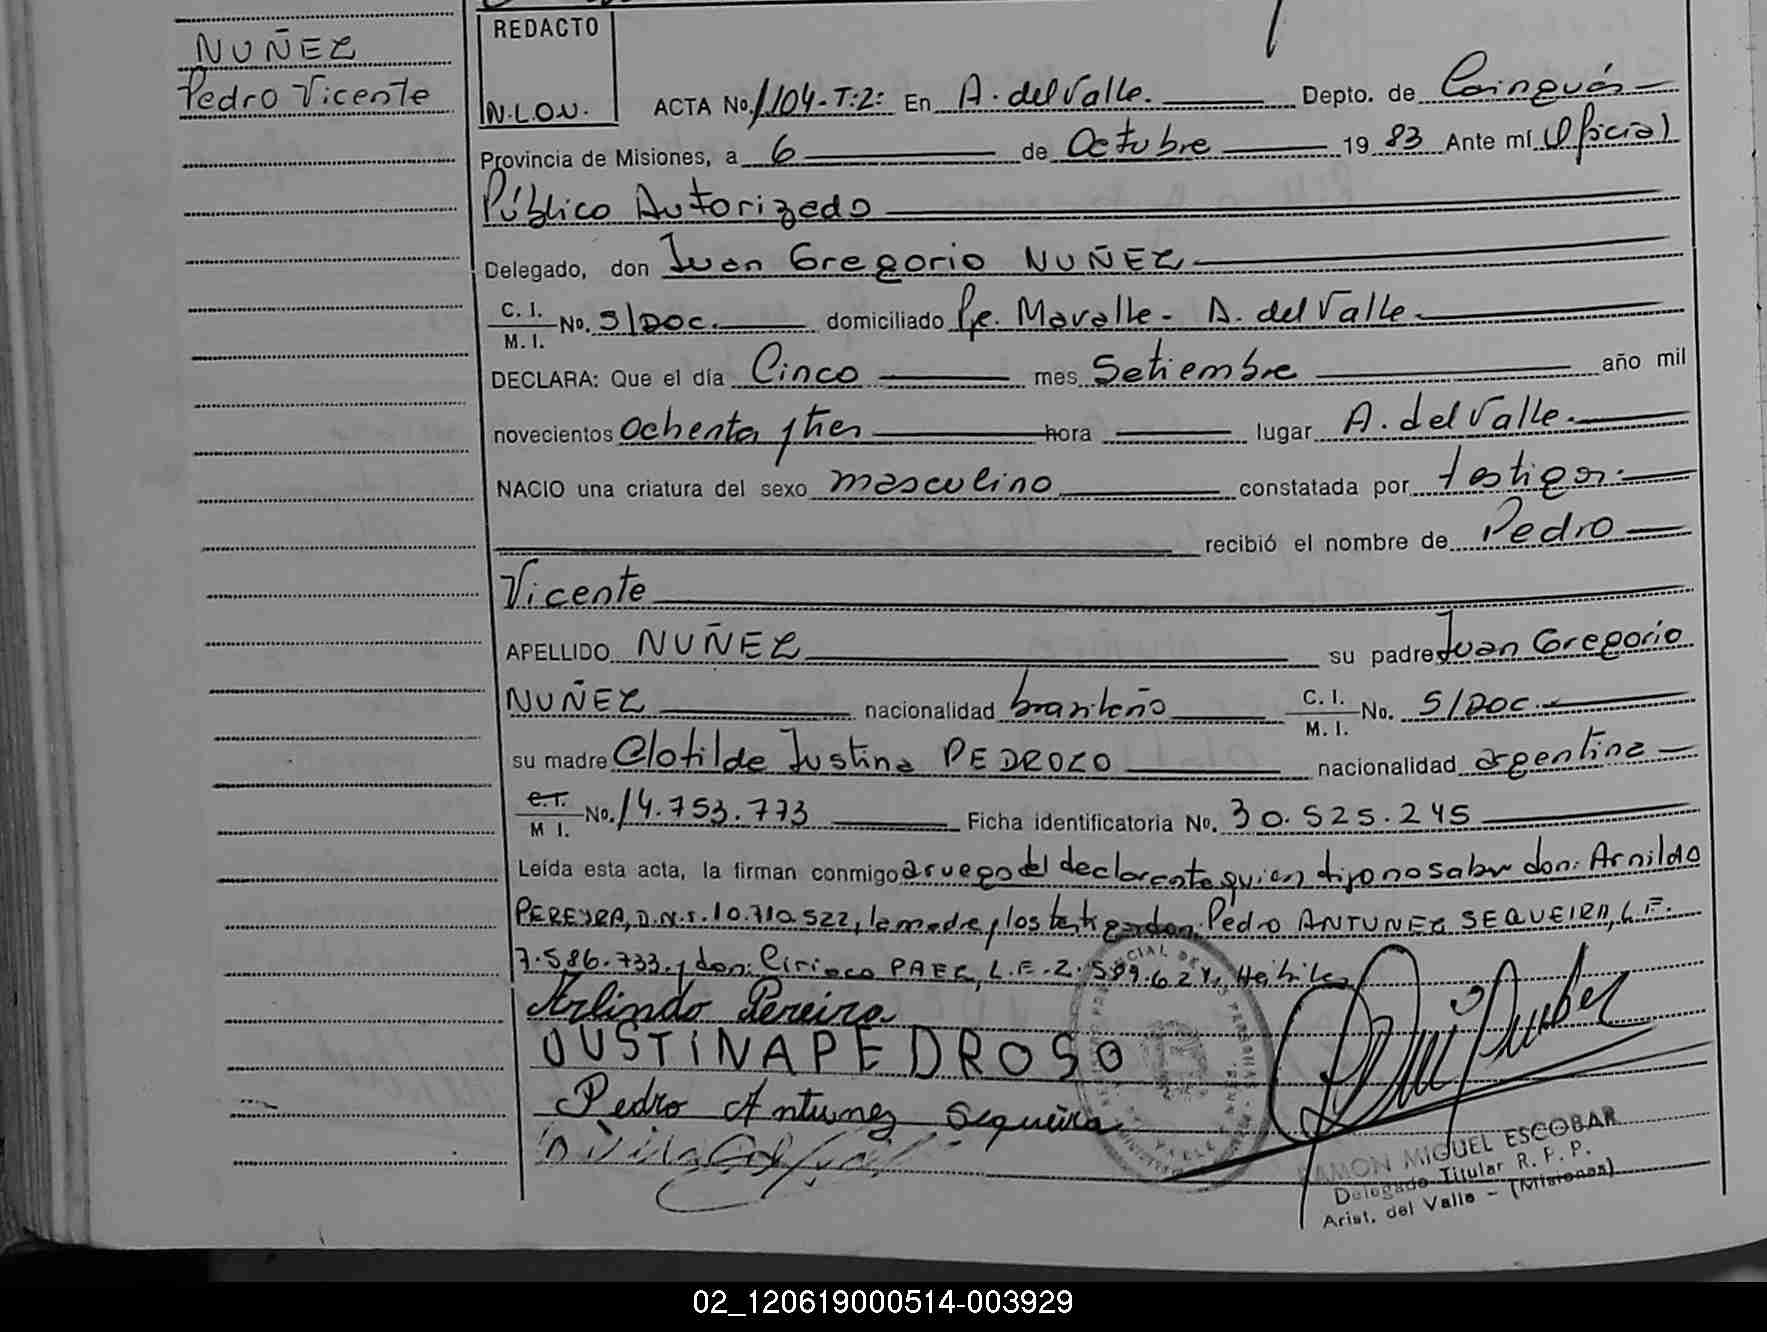 NUÑEZ
Pedro Vicente
REDACTO
N.L.O.N.
ACTA No. 1104-T:2: En A. del Valle. Depto. de Cainguás
Provincia de Misiones, a 6 de Octubre 19 83 Ante mí Oficial
Público Autorizado
Delegado, don Juan Gregorio NUÑEZ
C. I.
M. I. No. S/DOC. domiciliado Pje. Mavalle - A. del Valle
DECLARA: Que el día Cinco mes Setiembre año mil
novecientos ochenta y tres hora lugar A. del Valle.
NACIO una criatura del sexo masculino constatada por testigos
recibió el nombre de Pedro
Vicente
APELLIDO NUÑEZ su padre Juan Gregorio
NUÑEZ nacionalidad brasileño C. I.
M. I. No. S/DOC.
su madre Clotilde Justina PEDROZO nacionalidad argentina
C. I.
M I. No. 14.753.773 Ficha identificatoria No. 30.525.245
Leída esta acta, la firman conmigo a ruego del declarante quien dijo no saber don: Arnildo
PEREYRA, D.N.I. 10.710.522, la madre y los testigos don: Pedro ANTUNEZ SEQUEIRA, L.E.
7.586.733 y don: Ciriaco PAEZ, L.E. 2. Hábiles
Arlindo Pereira
JUSTINA PEDROSO
Pedro Antunez Sequeira
RAMON MIGUEL ESCOBAR
Delegado Titular R. P. P.
Arist. del Valle - (Misiones)
02_120619000514-003929